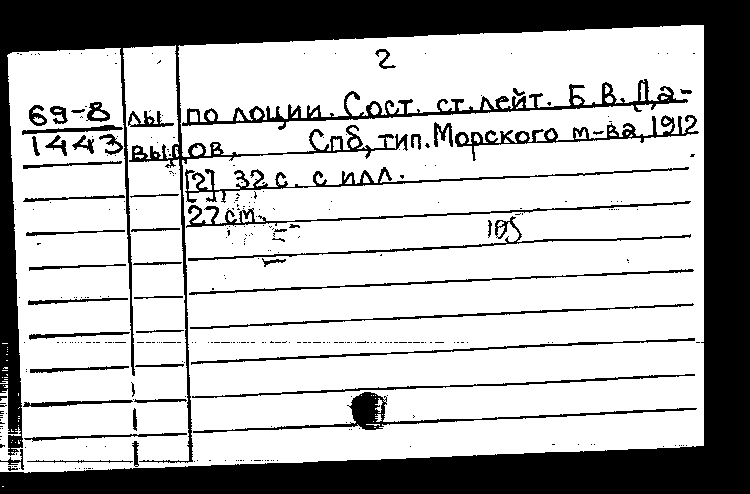 2
69-8 лы по лоции. Сост. ст. лейт. Б. В. Да-
1443 выдов. Спб, тип. Морского м-ва, 1912
[2], 32 с. с илл.
27 cm.
105